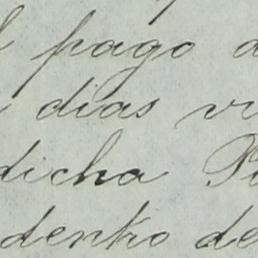 pago
dias
dicha
dentro de